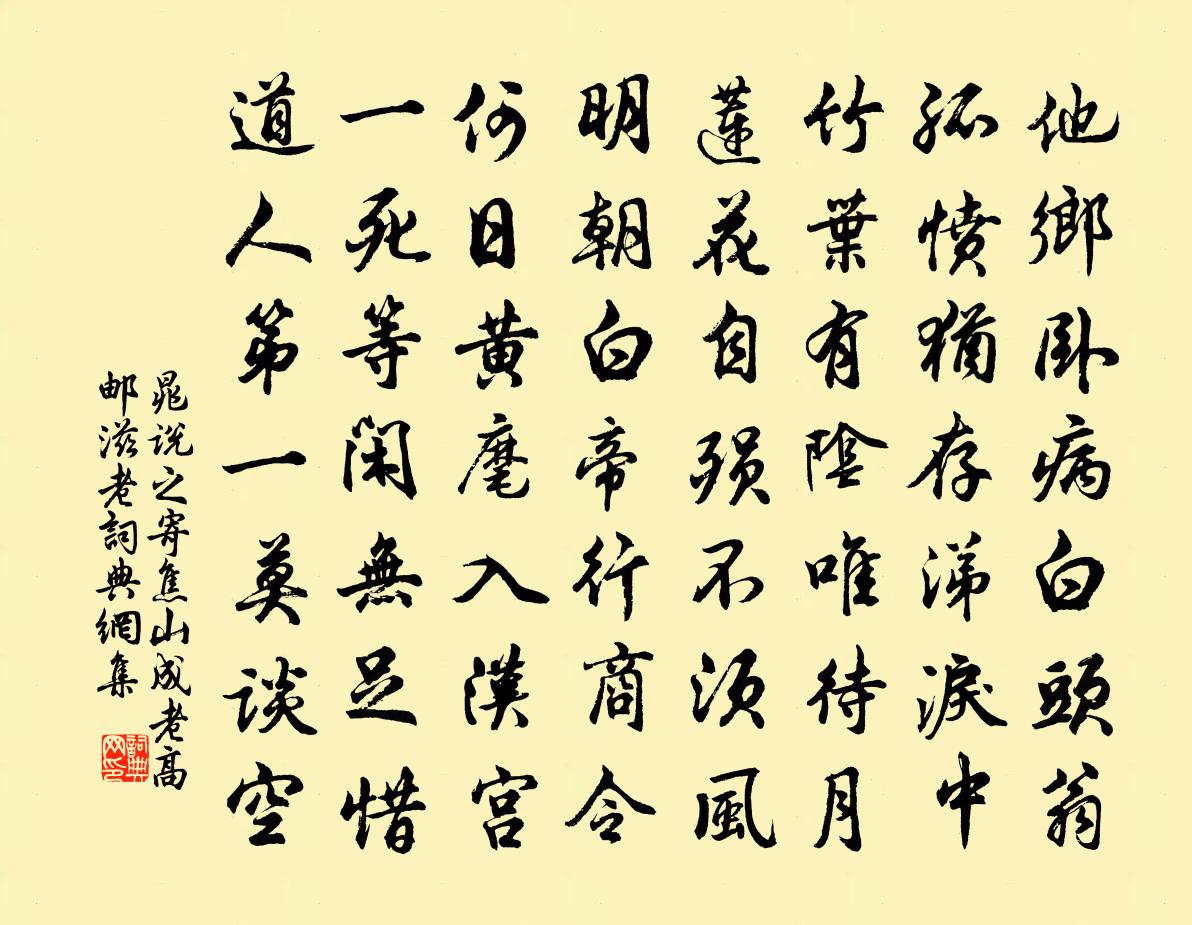 他鄉臥病白頭翁
孤憤猶存涕淚中
竹葉有陰唯待月
蓮花自殞不須風
明朝白帝行商令
何日黃麾入漢宮
一死等閑無足惜
道人第一莫談空
晁說之寄焦山成老高
邮滋老詞典網集
詞典網印